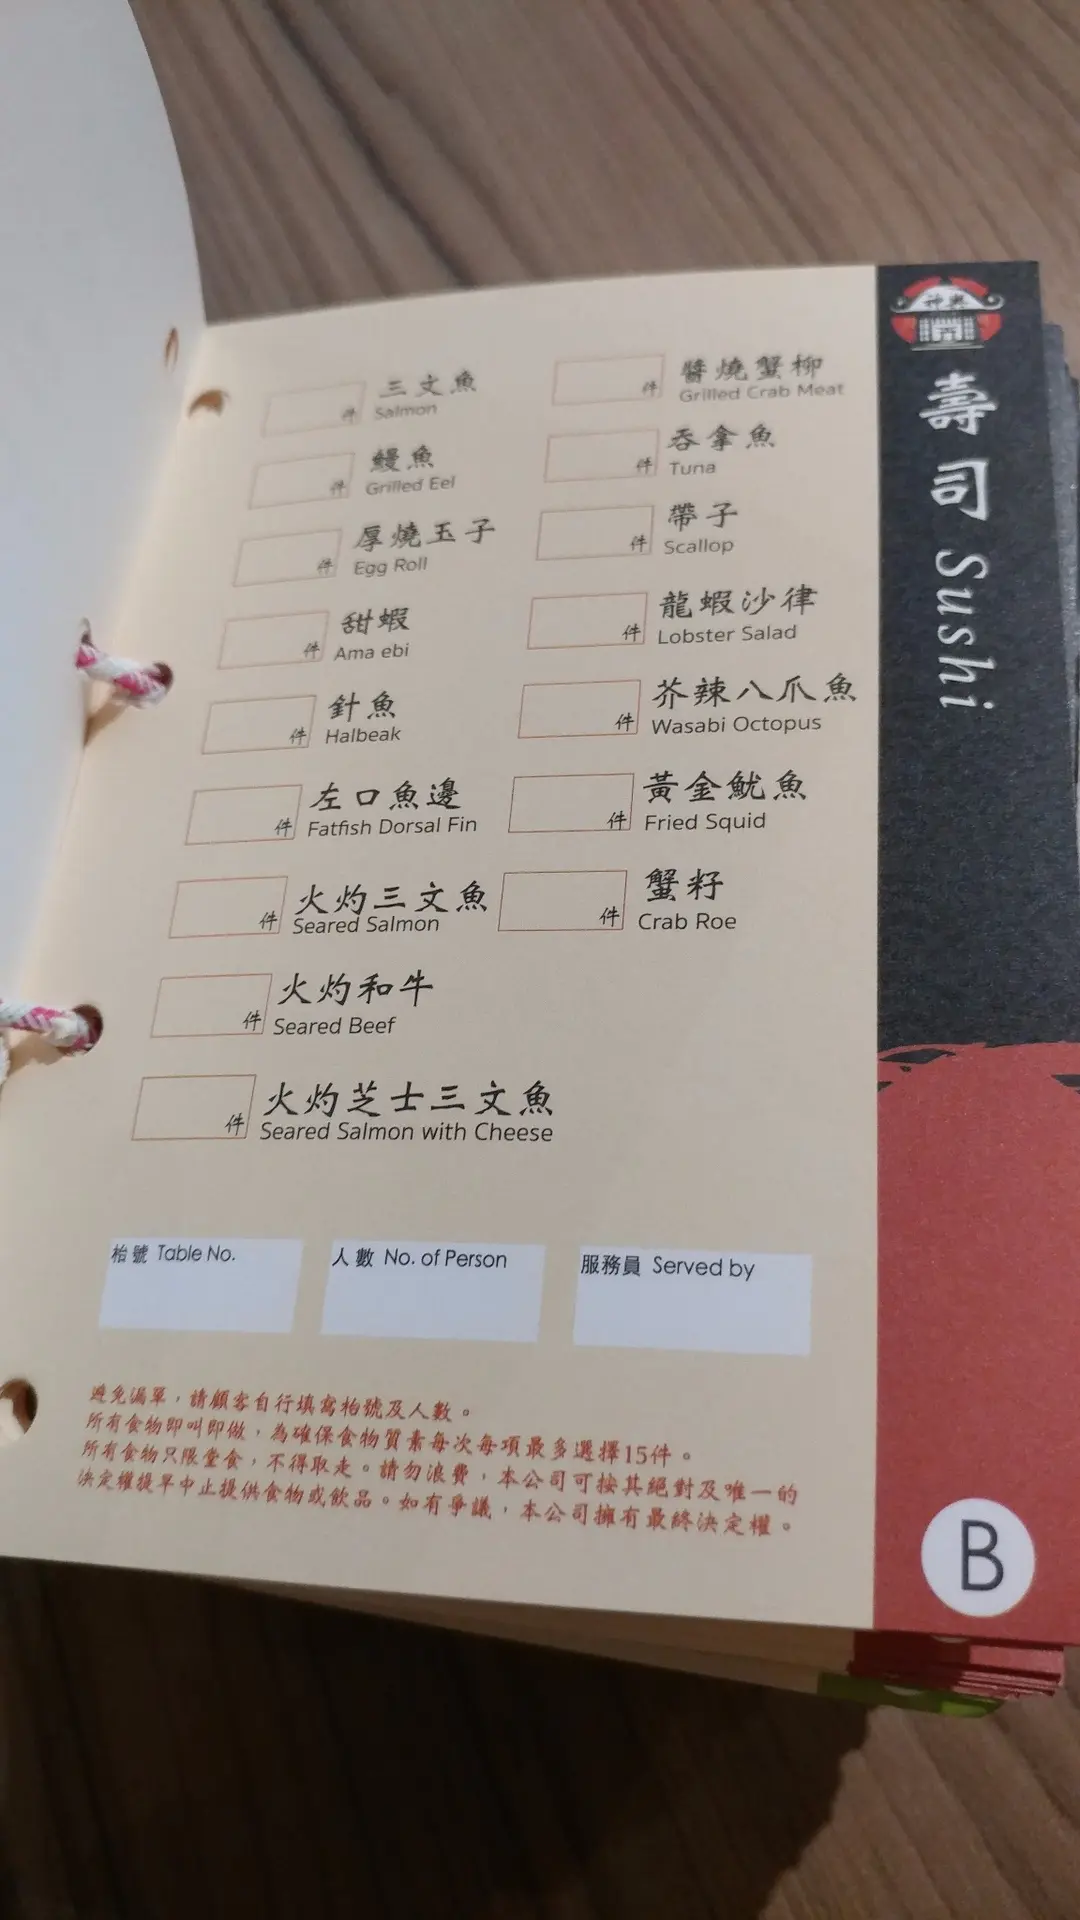 神樂
壽司 Sushi
件 三文魚
Salmon
件 鰻魚
Grilled Eel
件 厚燒玉子
Egg Roll
件 甜蝦
Ama ebi
件 針魚
Halbeak
件 左口魚邊
Fatfish Dorsal Fin
件 火灼三文魚
Seared Salmon
件 火灼和牛
Seared Beef
件 火灼芝士三文魚
Seared Salmon with Cheese
件 醬燒蟹柳
Grilled Crab Meat
件 吞拿魚
Tuna
件 帶子
Scallop
件 龍蝦沙律
Lobster Salad
件 芥辣八爪魚
Wasabi Octopus
件 黃金魷魚
Fried Squid
件 蟹籽
Crab Roe
枱號 Table No.
人數 No. of Person
服務員 Served by
避免漏單，請顧客自行填寫枱號及人數。
所有食物即叫即做，為確保食物質素每次每項最多選擇15件。
所有食物只限堂食，不得取走。請勿浪費，本公司可按其絕對及唯一的
決定權提早中止提供食物或飲品。如有爭議，本公司擁有最終決定權。
B